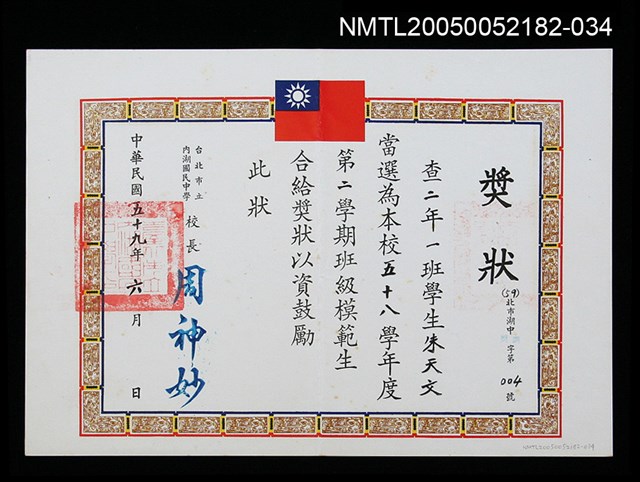 NMTL20050052182-034
獎狀
(59)北市湖中字第004號
查二年一班學生朱天文
當選為本校五十八學年度
第二學期班級模範生
合給獎狀以資鼓勵
此狀
台北市立
內湖國民中學
校長周神妙
中華民國五十九年六月日
NMTL20050052182-034